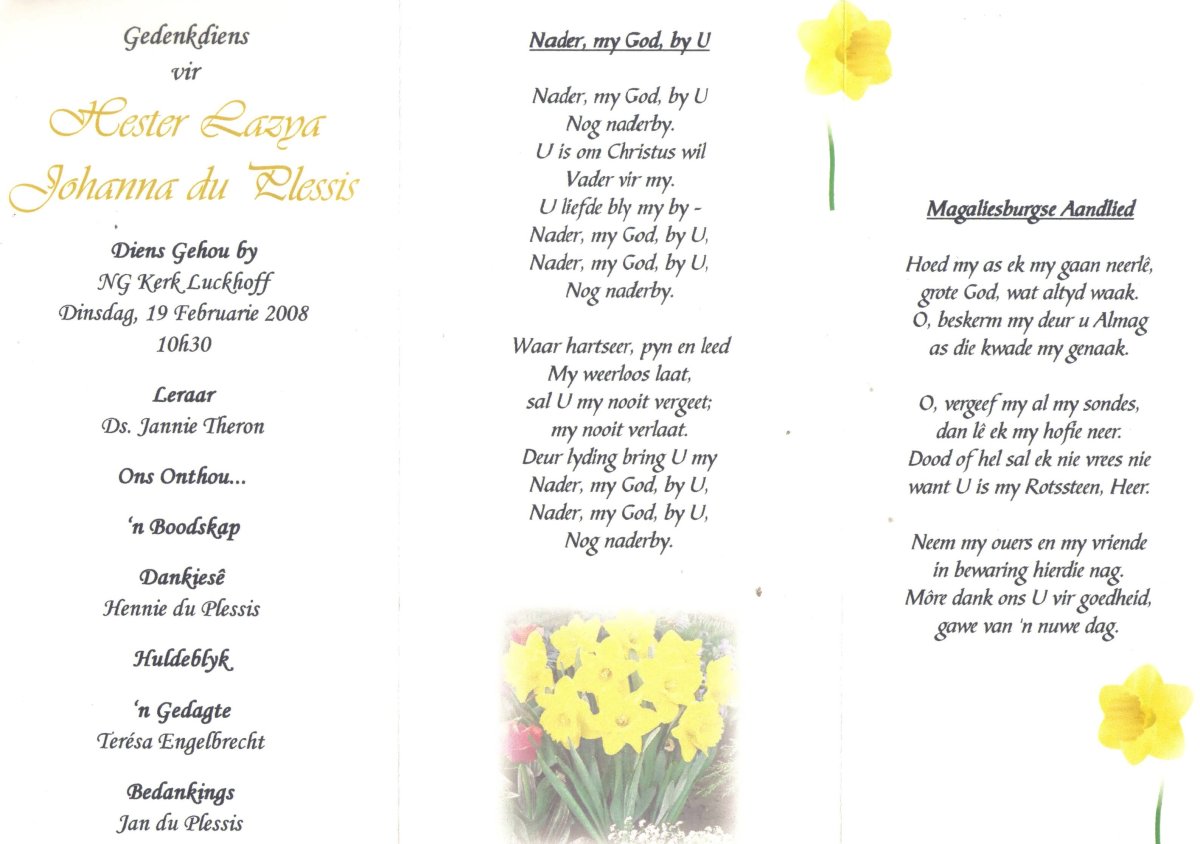 Gedenkdiens
vir
Hester Lazya
Johanna du Plessis
Diens Gehou by
NG Kerk Luckhoff
Dinsdag, 19 Februarie 2008
10h30
Leraar
Ds. Jannie Theron
Ons Onthou...
‘n Boodskap
Dankiesê
Hennie du Plessis
Huldeblyk
‘n Gedagte
Terésa Engelbrecht
Bedankings
Jan du Plessis
Nader, my God, by U
Nader, my God, by U
Nog naderby.
U is om Christus wil
Vader vir my.
U liefde bly my by -
Nader, my God, by U,
Nader, my God, by U,
Nog naderby.
Waar hartseer, pyn en leed
My weerloos laat,
sal U my nooit vergeet;
my nooit verlaat.
Deur lyding bring U my
Nader, my God, by U,
Nader, my God, by U,
Nog naderby.
Magaliesburgse Aandlied
Hoed my as ek my gaan neerlê,
grote God, wat altyd waak.
O, beskerm my deur u Almag
as die kwade my genaak.
O, vergeef my al my sondes,
dan lê ek my hofie neer.
Dood of hel sal ek nie vrees nie
want U is my Rotssteen, Heer.
Neem my ouers en my vriende
in bewaring hierdie nag.
Môre dank ons U vir goedheid,
gawe van 'n nuwe dag.